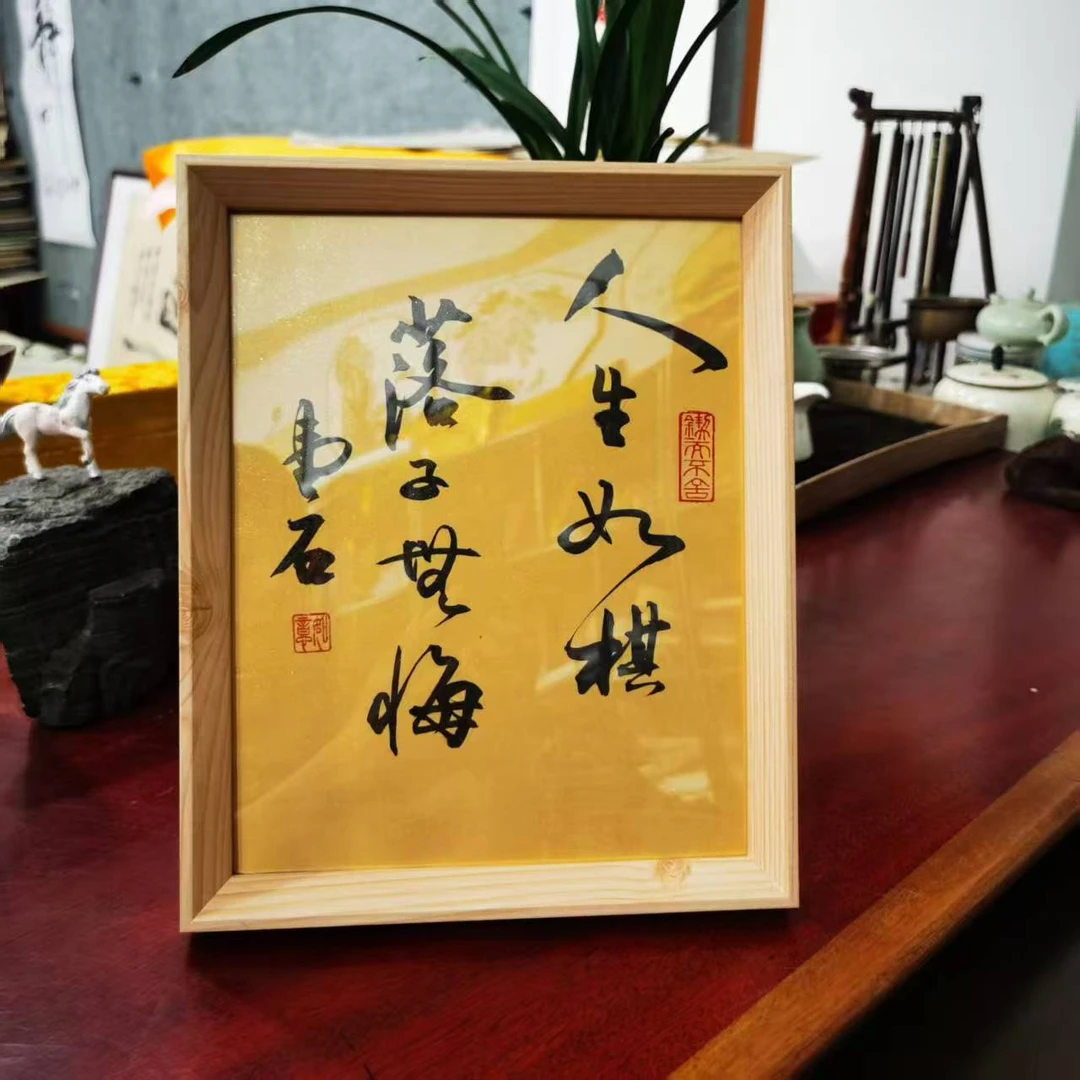 人生如棋
落子無悔
韦石